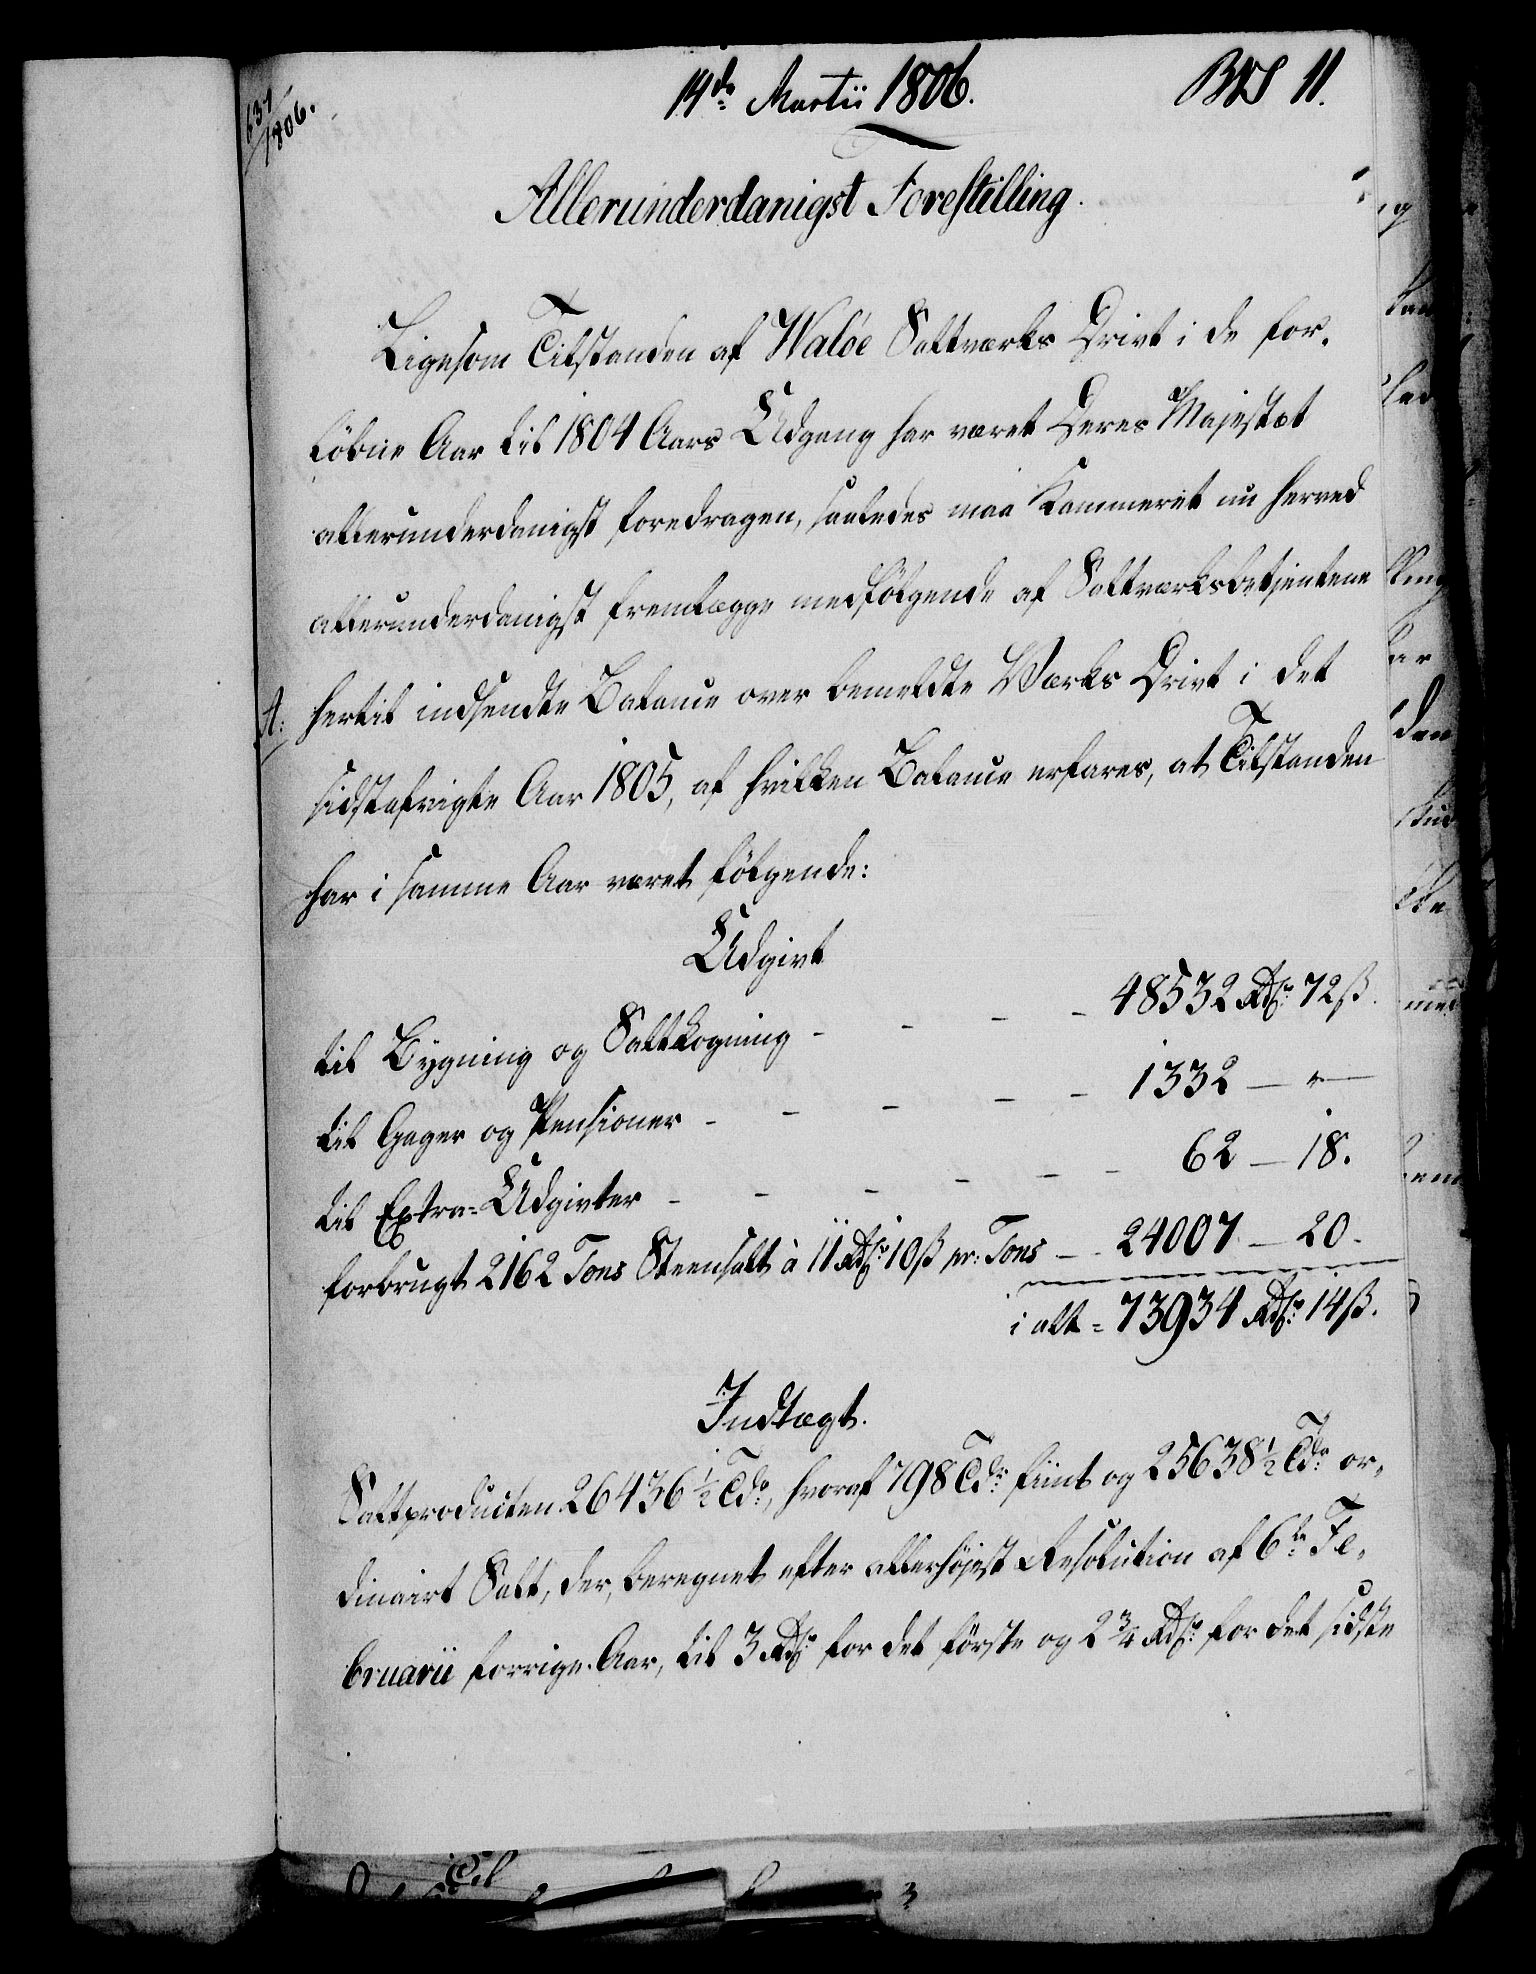 637/1806.
14de Martii 1806. BNS 11.
Allerunderdanigst Forestilling.
Ligesom Tilstanden af Waløe Saltværks Drivt i de for,
løbne Aar til 1804 Aars Udgang har været Deres Majestæt
allerunderdanigst foredragen, saaledes maa Kammeret nu herved
allerunderdanigst fremlægge medfølgende af Saltværksbetjentene
A: hertil indsendte Balance over bemeldte Værks Drivt i det
sidstafvigte Aar 1805, af hvilken Balance erfares, at Tilstanden
har i samme Aar været følgende:
Udgivt
til Bygning og Saltkogning - - - - 48532 Rdr 72 ß.
til Gager og Pensioner - - - - - 1332 — „ —
til Extra-Udgivter - - - - - - 62 — 18.
forbrugt 2162 Tons Steensalt à 11 Rdr 10 ß pr: Tons — 24007 — 20.
i alt = 73934 Rdr 14 ß.
Indtægt.
Saltproducten 26436 1/2 Tdr, hvoraf 798 Tdr fiint og 25638 1/2 Tdr or,
dinairt Salt, der, beregnet efter allerhøjest Resolution af 6te Fe,
bruarii forrige Aar, til 3 Rdr for det første og 2 3/4 Rdr for det sidste